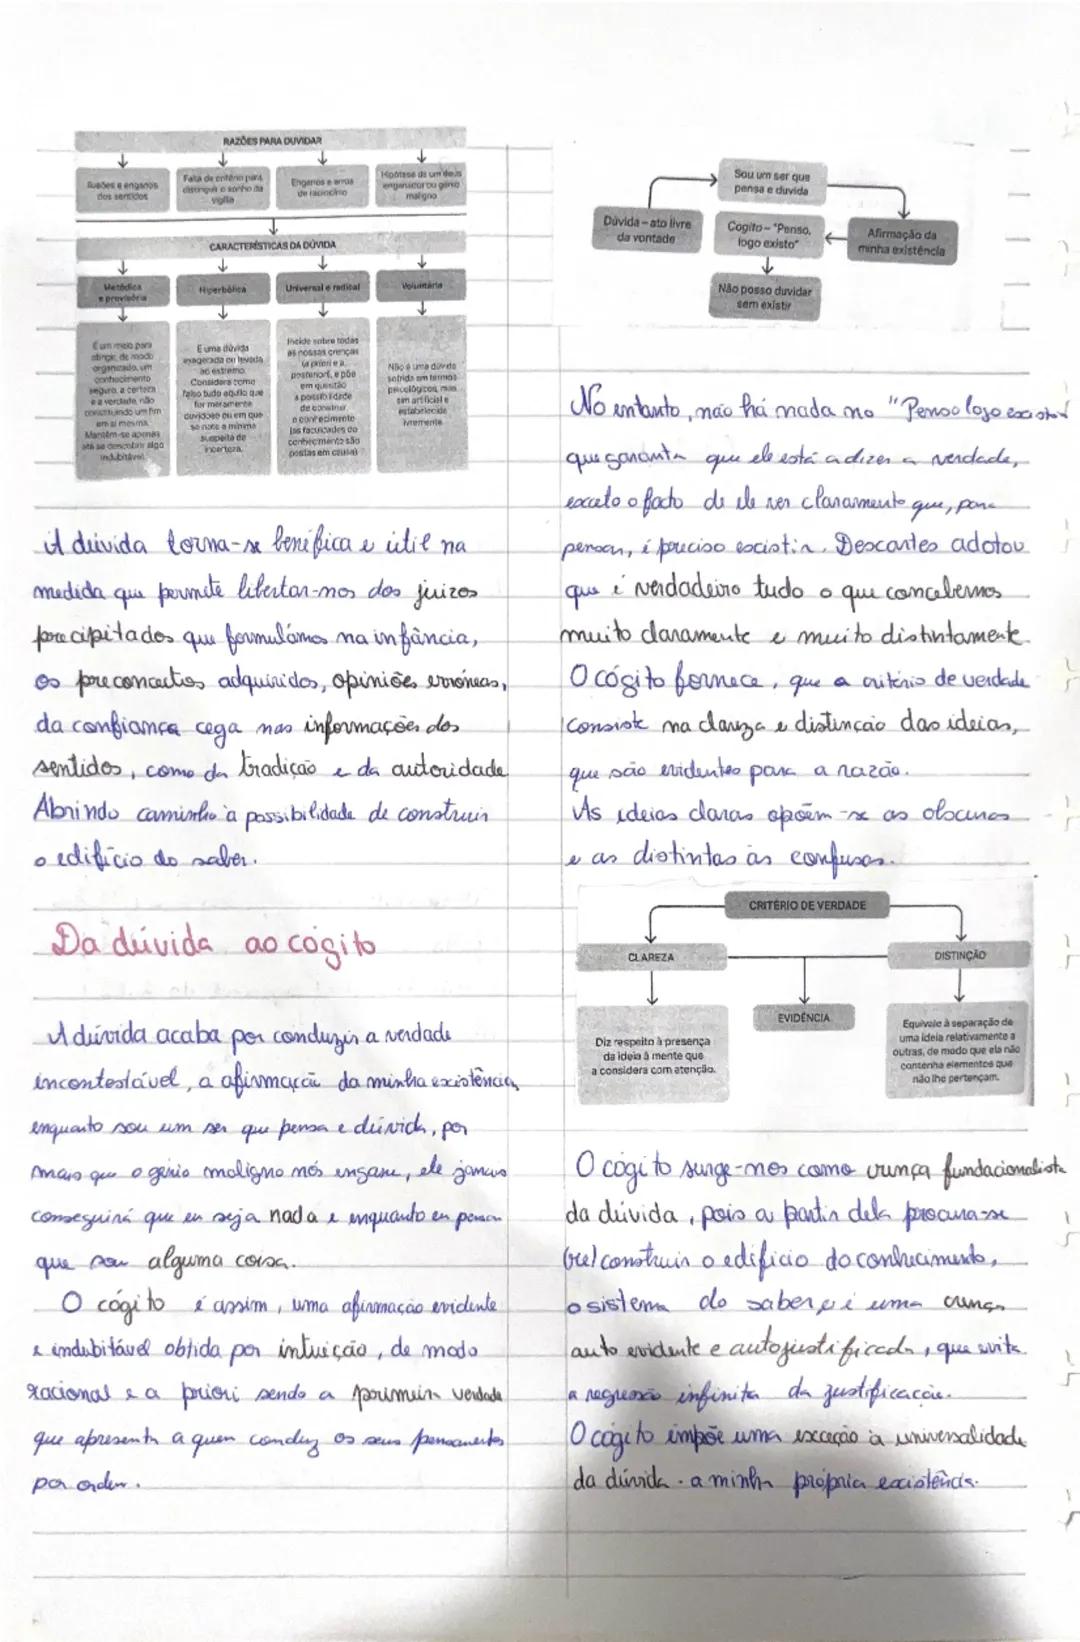 RAZÕES PARA DUVIDAR
Ilusões e enganos
dos sentidos
Falta de critério para
distinguir o sonho da
vigília
Enganos e erros
de raciocínio
Hipótese de um deus
enganador ou génio
maligno
CARACTERÍSTICAS DA DÚVIDA
Metódica
e provisória
Hiperbólica
Universal e radical
Voluntária
É um meio para
atingir, de modo
organizado, um
conhecimento
seguro, a certeza
e a verdade, não
constituindo um fim
em si mesma.
Mantém-se apenas
até se descobrir algo
indubitável.
É uma dúvida
exagerada ou levada
ao extremo.
Considera como
falso tudo aquilo que
for meramente
duvidoso ou em que
se note a mínima
suspeita de
incerteza.
Incide sobre todas
as nossas crenças
(a priori e a
posteriori), e põe
em questão
a possibilidade
de construir
o conhecimento
(as faculdades do
conhecimento são
postas em causa)
Não é uma dúvida
sofrida em termos
psicológicos, mas
sim artificial e
estabelecida
livremente.
A dúvida torna-se benéfica e útil na
medida que permite libertar-nos dos juízos
precipitados que formulámos na infância,
os preconceitos adquiridos, opiniões erróneas,
da confiança cega nas informações dos
sentidos, como da tradição e da autoridade
Abrindo caminho à possibilidade de construir
o edifício do saber.
Da dúvida ao cógito
A dúvida acaba por conduzir a verdade
incontestável, a afirmação da minha existência,
enquanto sou um ser que pensa e duvida, por
mais que o génio maligno nos engane, ele jamais
conseguirá que eu seja nada e enquanto eu pensar
que sou alguma coisa.
O cógito é assim, uma afirmação evidente
e indubitável obtida por intuição, de modo
racional e a priori sendo a primeira verdade
que apresenta a quem conduz os seus pensamentos
por ordem.
Sou um ser que
pensa e duvida
Dúvida – ato livre
da vontade
Cogito – "Penso,
logo existo"
Afirmação da
minha existência
Não posso duvidar
sem existir
No entanto, não há nada no "Penso logo existo"
que garanta que ele está a dizer a verdade,
exceto o facto de ele ver claramente que, para
pensar, é preciso existir. Descartes adotou
que é verdadeiro tudo o que concebemos
muito claramente e muito distintamente.
O cógito fornece, que o critério de verdade
consiste na clareza e distinção das ideias,
que são evidentes para a razão.
As ideias claras opõem-se as obscuras
e as distintas às confusas.
CRITÉRIO DE VERDADE
CLAREZA
DISTINÇÃO
EVIDÊNCIA
Diz respeito à presença
da ideia à mente que
a considera com atenção.
Equivale à separação de
uma ideia relativamente a
outras, de modo que ela não
contenha elementos que
não lhe pertençam.
O cógito surge-nos como crença fundacionalista
da dúvida, pois a partir dela procura-se
(re)construir o edifício do conhecimento,
o sistema do saber, é uma crença
auto evidente e autojustificada, que evita
a regressão infinita da justificação.
O cógito impõe uma exceção à universalidade
da dúvida - a minha própria existência.